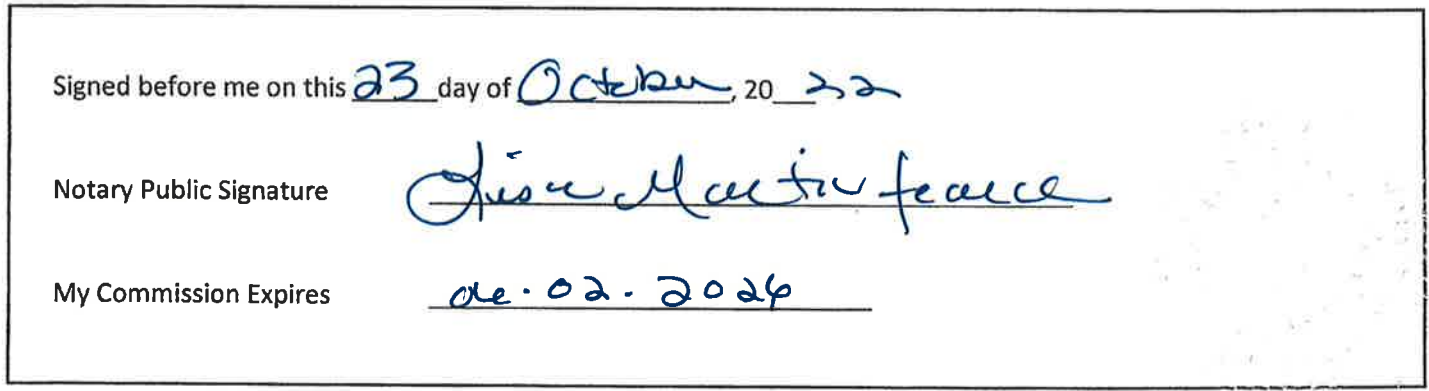 Signed before me on this 23 day of October, 20 22
Notary Public Signature Lisa Martin
My Commission Expires 02. 2026